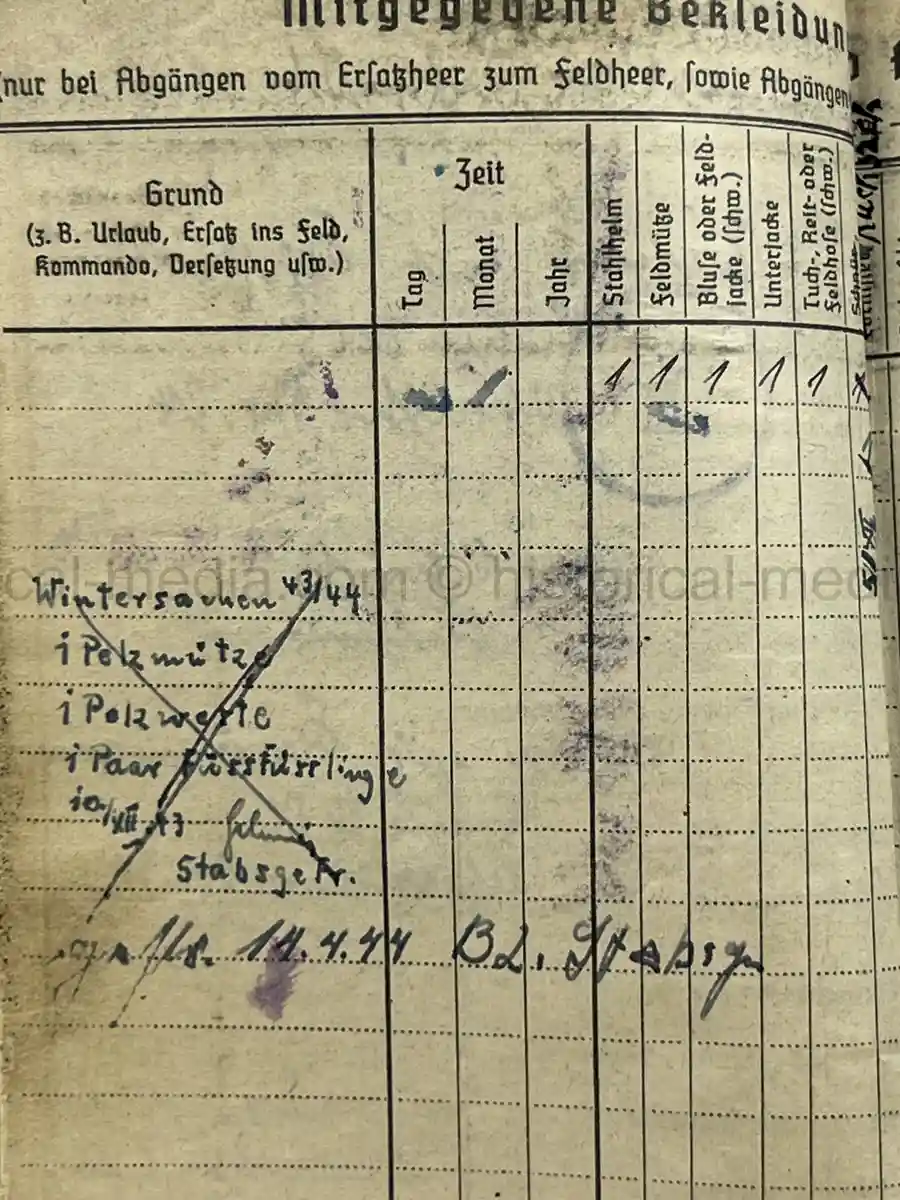 Mitgegebene Bekleidun
(nur bei Abgängen vom Ersatzheer zum Feldheer, sowie Abgängen
Grund
(z. B. Urlaub, Ersatz ins Feld,
Kommando, Versetzung usw.)
Zeit
Tag
Monat
Jahr
Stahlhelm
Feldmütze
Bluse oder Feld-
jacke (schw.)
Unterjacke
Tuch-, Reit- oder
Feldhose (schw.)
1 1 1 1 1
cal-media.com © historical-medi
Wintersachen 43/44
1 Pelzmütze
1 Pelzweste
1 Paar
XII. 43
Stabsgefr.
14.4.44